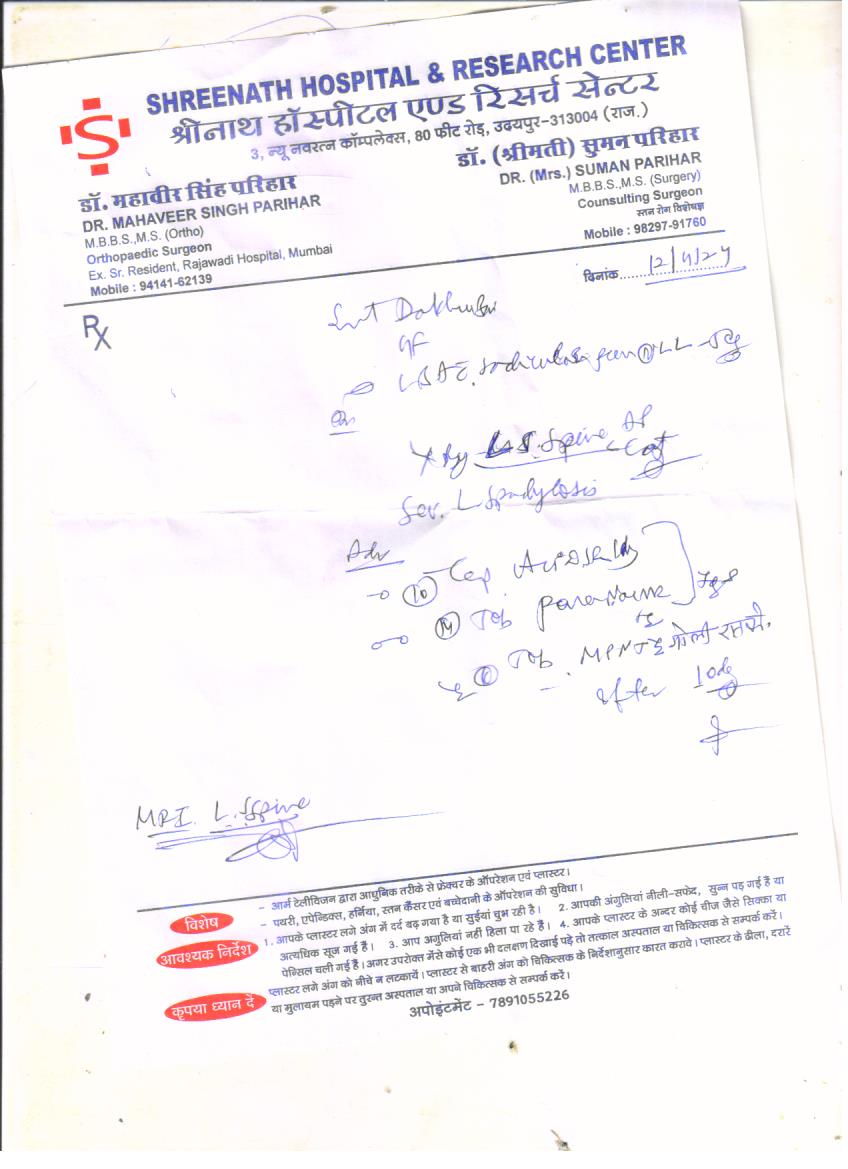 SHREENATH HOSPITAL & RESEARCH CENTER
श्रीनाथ हॉस्पीटल एण्ड रिसर्च सेन्टर
3, न्यू नवरत्न कॉम्पलेक्स, 80 फीट रोड़, उदयपुर-313004 (राज.)
S
डॉ. महावीर सिंह परिहार
DR. MAHAVEER SINGH PARIHAR
M.B.B.S.,M.S. (Ortho)
Orthopaedic Surgeon
Ex. Sr. Resident, Rajawadi Hospital, Mumbai
Mobile : 94141-62139
डॉ. (श्रीमती) सुमन परिहार
DR. (Mrs.) SUMAN PARIHAR
M.B.B.S.,M.S. (Surgery)
Counsulting Surgeon
स्तन रोग विशेषज्ञ
Mobile : 98297-91760
दिनांक
Rx
Spine AP
L Spondylosis
Adv
10 Cap
Tab
Tab गोली
after 10
MRI L. Spine
विशेष
- आर्म टेलीविजन द्वारा आधुनिक तरीके से फ्रेक्चर के ऑपरेशन एवं प्लास्टर।
- पथरी, एपेन्डिक्स, हर्निया, स्तन कैंसर एवं बच्चेदानी के ऑपरेशन की सुविधा।
आवश्यक निर्देश
1. आपके प्लास्टर लगे अंग में दर्द बढ़ गया है या सुईयां चुभ रही है। 2. आपकी अंगुलियां नीली-सफेद, सुन्न पड़ गई हैं या
अत्यधिक सूज गई हैं। 3. आप अगुलियां नहीं हिला पा रहे हैं। 4. आपके प्लास्टर के अन्दर कोई चीज जैसे सिक्का या
पेन्सिल चली गई हैं। अगर उपरोक्त मेंसे कोई एक भी दलक्षण दिखाई पड़े तो तत्काल अस्पताल या चिकित्सक से सम्पर्क करें।
कृपया ध्यान दें
प्लास्टर लगे अंग को नीचे न लटकायें। प्लास्टर से बाहरी अंग को चिकित्सक के निर्देशानुसार कारत करावे। प्लास्टर के ढीला, दरारें
या मुलायम पड़ने पर तुरन्त अस्पताल या अपने चिकित्सक से सम्पर्क करें।
अपोइंटमेंट - 7891055226